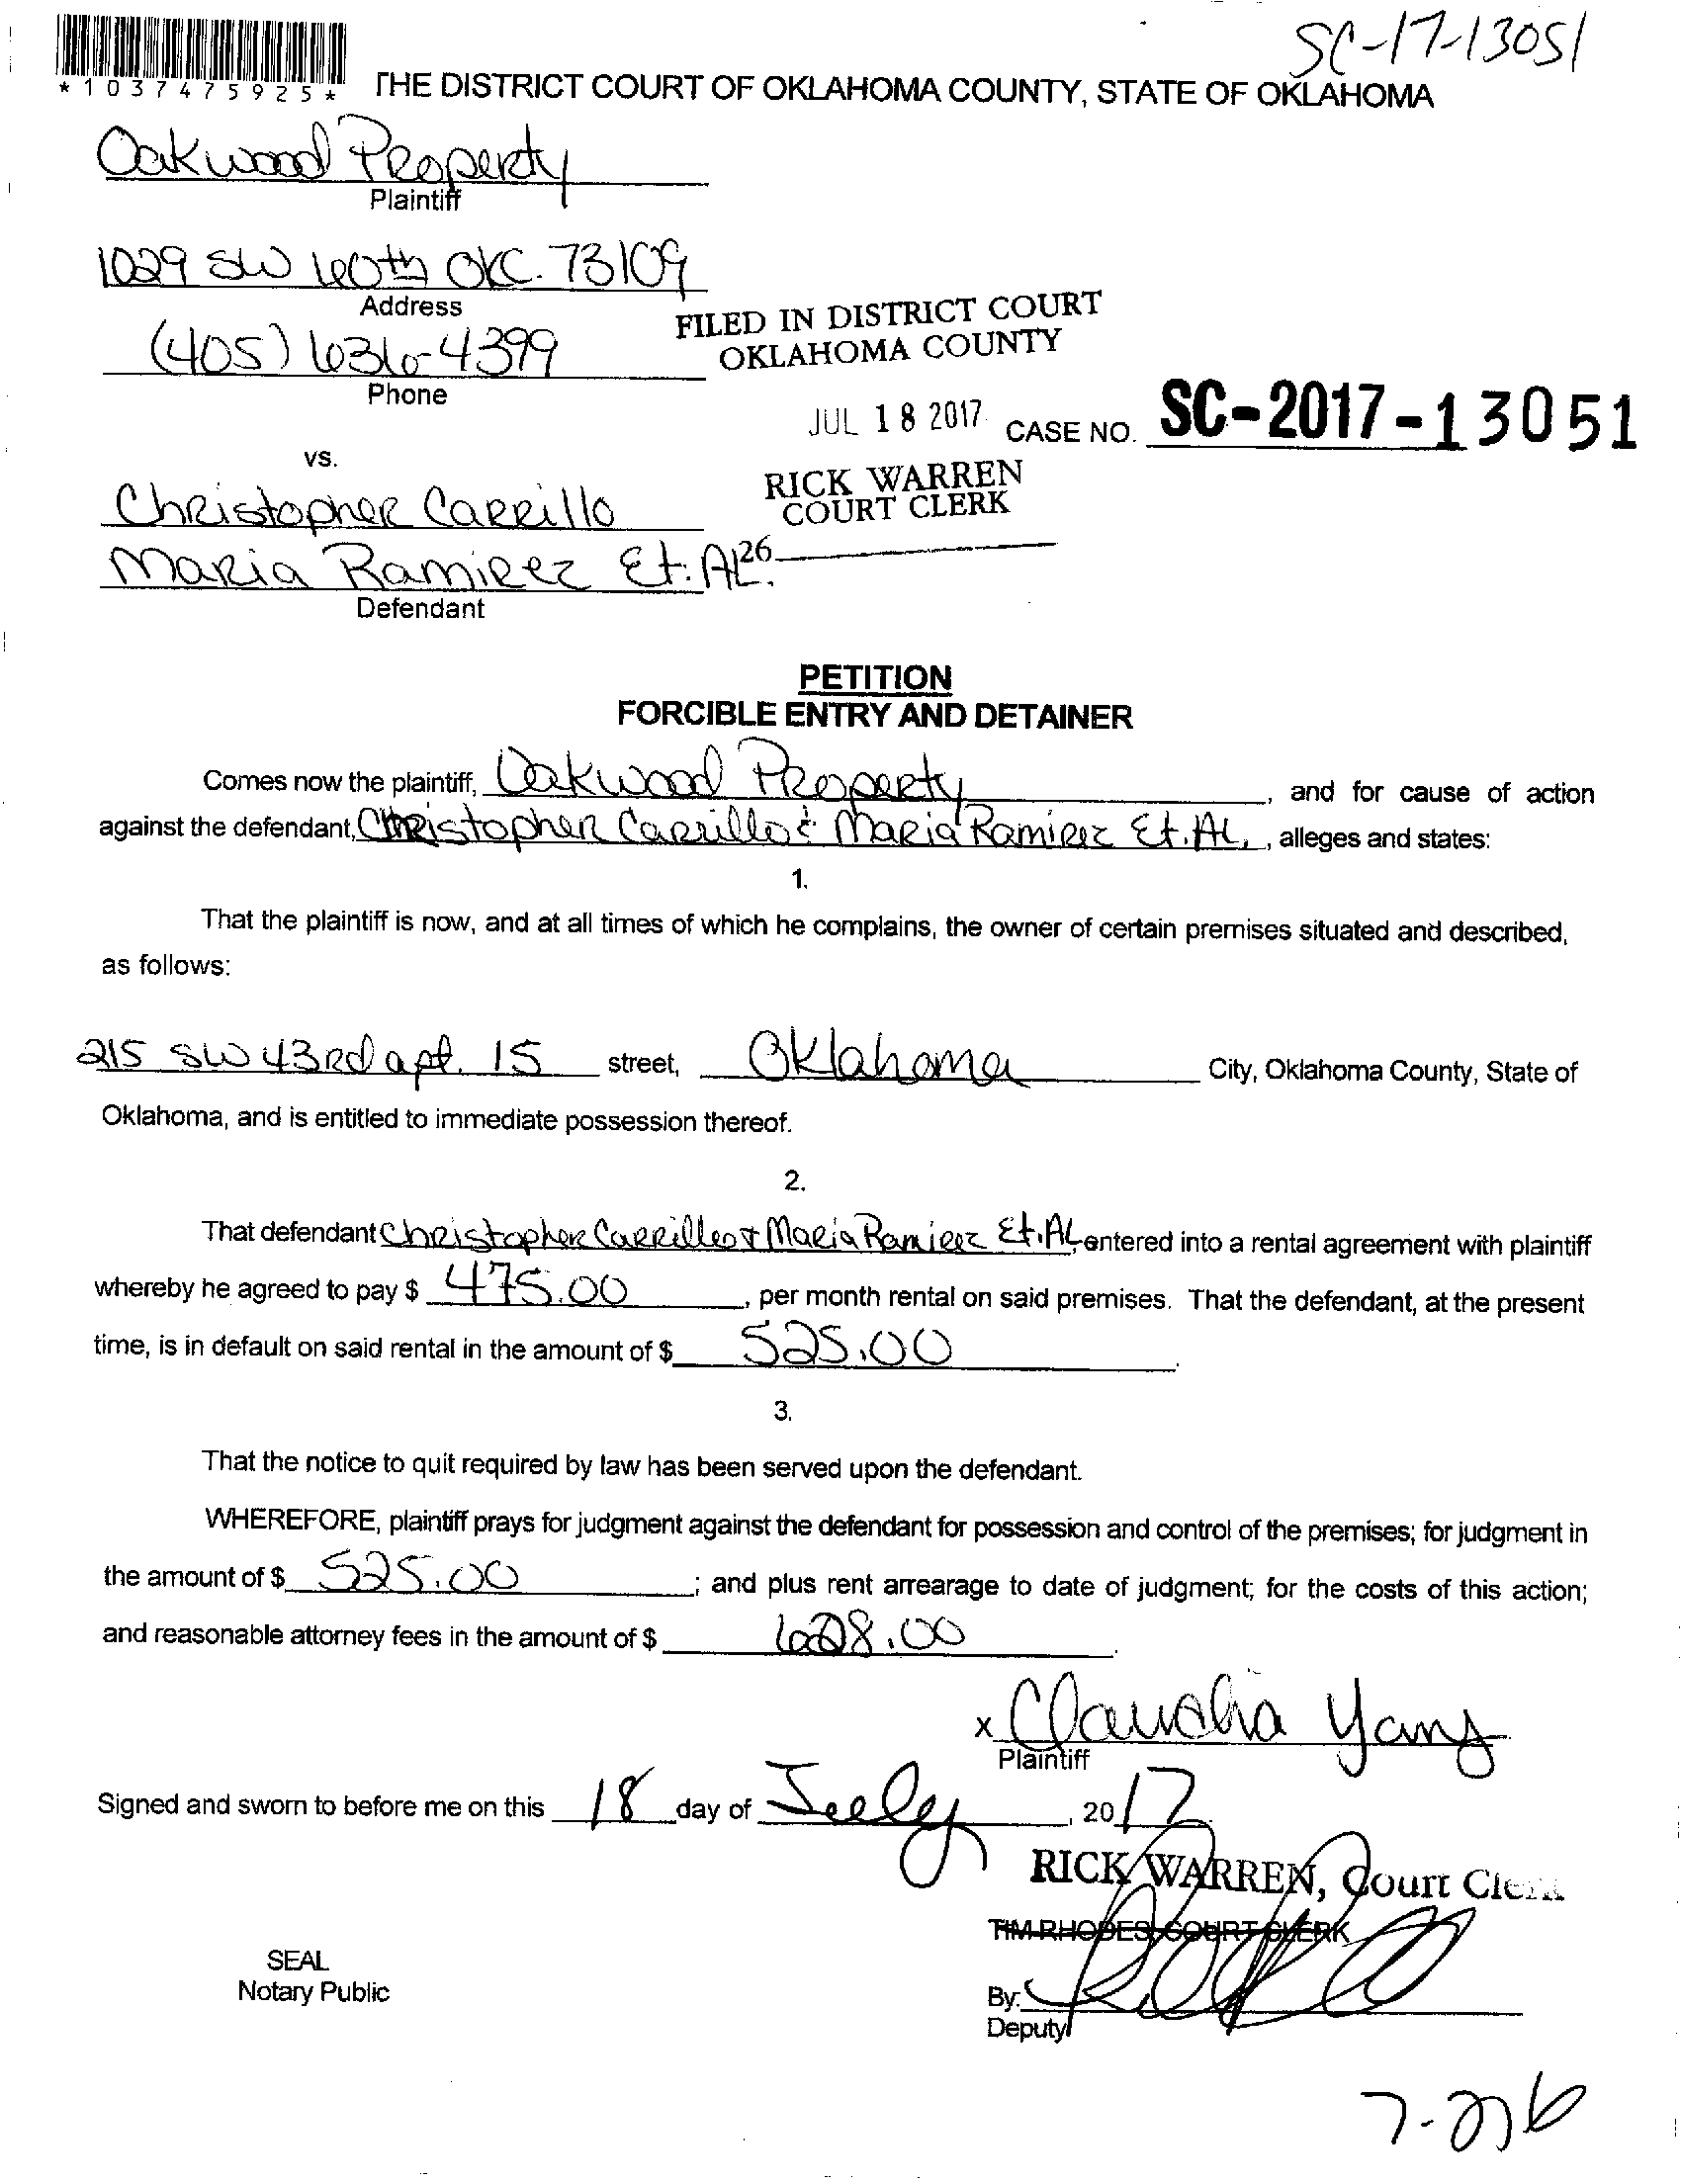 SC-17-13051
*1037475925*
THE DISTRICT COURT OF OKLAHOMA COUNTY, STATE OF OKLAHOMA
Oakwood Property
Plaintiff
1029 SW 60th OKC. 73109
Address
(405) 636-4399
Phone
FILED IN DISTRICT COURT
OKLAHOMA COUNTY
JUL 18 2017
CASE NO. SC-2017-13051
vs.
RICK WARREN
COURT CLERK
Christopher Carrillo
26
Maria Ramirez Et. AL.
Defendant
PETITION
FORCIBLE ENTRY AND DETAINER
Comes now the plaintiff, Oakwood Property, and for cause of action
against the defendant, Christopher Carrillo & Maria Ramirez Et. AL, , alleges and states:
1.
That the plaintiff is now, and at all times of which he complains, the owner of certain premises situated and described,
as follows:
215 SW 43rd apt. 15 street, Oklahoma City, Oklahoma County, State of
Oklahoma, and is entitled to immediate possession thereof.
2.
That defendant Christopher Carrilleo & Maria Ramirez Et. AL, entered into a rental agreement with plaintiff
whereby he agreed to pay $ 475.00, per month rental on said premises. That the defendant, at the present
time, is in default on said rental in the amount of $ 525.00.
3.
That the notice to quit required by law has been served upon the defendant.
WHEREFORE, plaintiff prays for judgment against the defendant for possession and control of the premises; for judgment in
the amount of $ 525.00; and plus rent arrearage to date of judgment; for the costs of this action;
and reasonable attorney fees in the amount of $ 628.00.
x Claudia Yany
Plaintiff
Signed and sworn to before me on this 18 day of July, 2017.
RICK WARREN, Court Clerk
TIM RHODES, COURT CLERK
SEAL
Notary Public
By:
Deputy